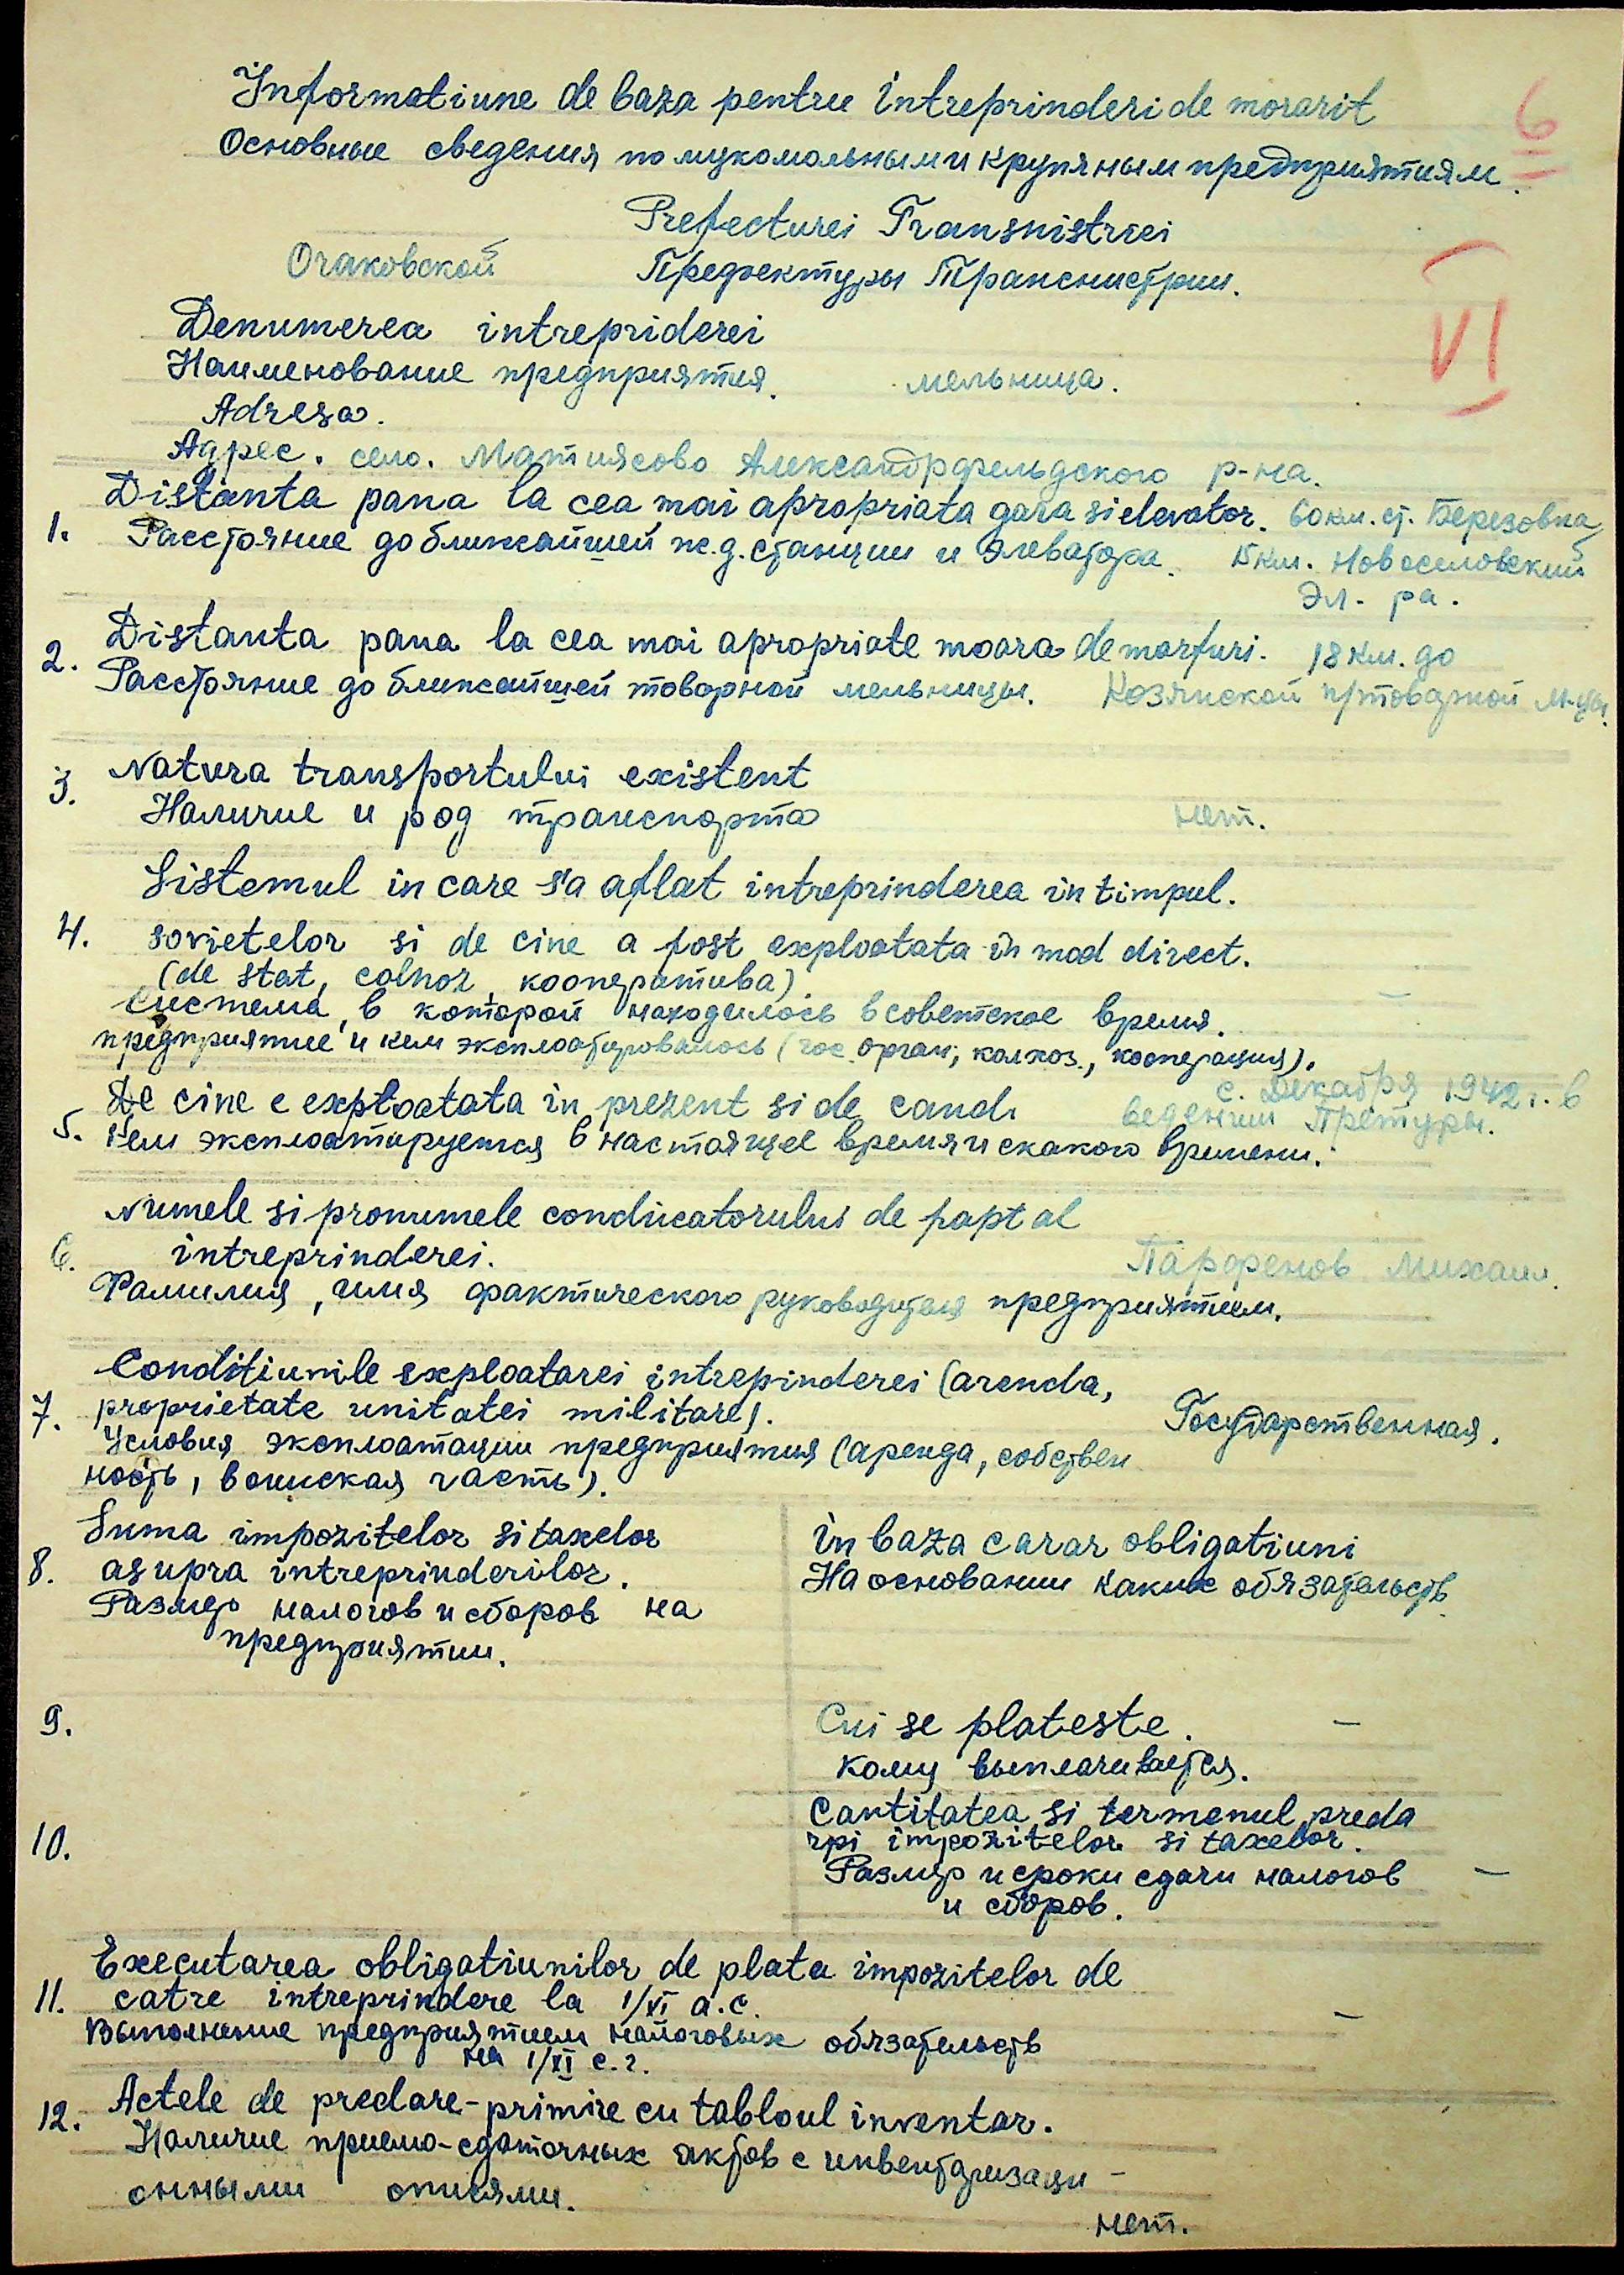 Informatiune de baza pentru intreprinderi de morarit
6
Основные сведения по мукомольным и крупяным предприятиям.
Prefecturei Transnistriei
Очаковской Префектуры Транснистрии.
VI
Denumerea intrepriderei
Наименование предприятия. мельница.
Adresa.
Адрес. село. Матиясово Александрфельдского р-на.
Distanta pana la cea mai apropriata gara si elevator. 60 км. ст. Березовка
1. Расстояние до ближайшей ж.д. станции и элеватора. 15 км. Новоселовский
Эл-ра.
Distanta pana la cea mai apropriate moara de marfuri. 18 км. до
2. Расстояние до ближайшей товарной мельницы. Козянской п/товарной м-цы.
3. Natura transportului existent
Наличие и род транспорта нет.
Sistemul in care s'a aflat intreprinderea in timpul.
4. sovietelor si de cine a fost exploatata in mod direct.
(de stat, colhoz, кооператива)
Система, в которой находилось в советское время. –
предприятие и кем эксплоатировалось (гос. орган, колхоз., кооперация).
с. Декабря 1942 г. в
De cine e exploatata in prezent si de cand. ведении Претуры.
5. Кем эксплоатируется в настоящее время и с какого времени.
Numele si pronumele conducatorului de fapt al
6. intreprinderei. Парфенов Михаил.
Фамилия, имя фактического руководителя предприятием.
Conditiunile exploatarei intrepinderei (arenda,
7. proprietate unitatei militare). Государственная.
Условия эксплоатации предприятия (аренда, собствен
ность, воинская часть).
Suma impozitelor si taxelor
8. asupra intreprinderilor.
Размер налогов и сборов на
предприятии.
in baza carar obligatiuni
На основании каких обязательств
9. Cui se plateste. –
Кому выплачивается.
Cantitatea si termenul preda
10. rpi impozitelor si taxelor.
Размер и сроки сдачи налогов –
и сборов.
Executarea obligatiunilor de plata impozitelor de
11. catre intreprindere la 1/XI a.c.
Выполнение предприятием налоговых обязательств –
на 1/XI с.г.
12. Actele de predare-primire cu tabloul inventar.
Наличие приемо-сдаточных актов с инвентаризаци–
онными описями.
нет.